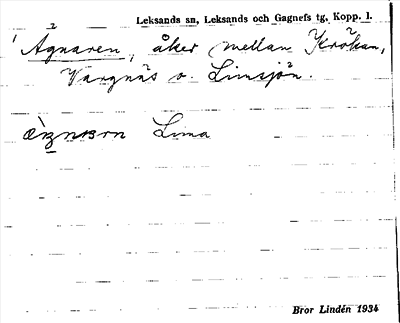 Leksands sn, Leksands och Gagnefs tg. Kopp. l.
Ägnaren, åker mellan Krökan,
Vargnäs o. Limsjön.
Lima
Bror Lindén 1934